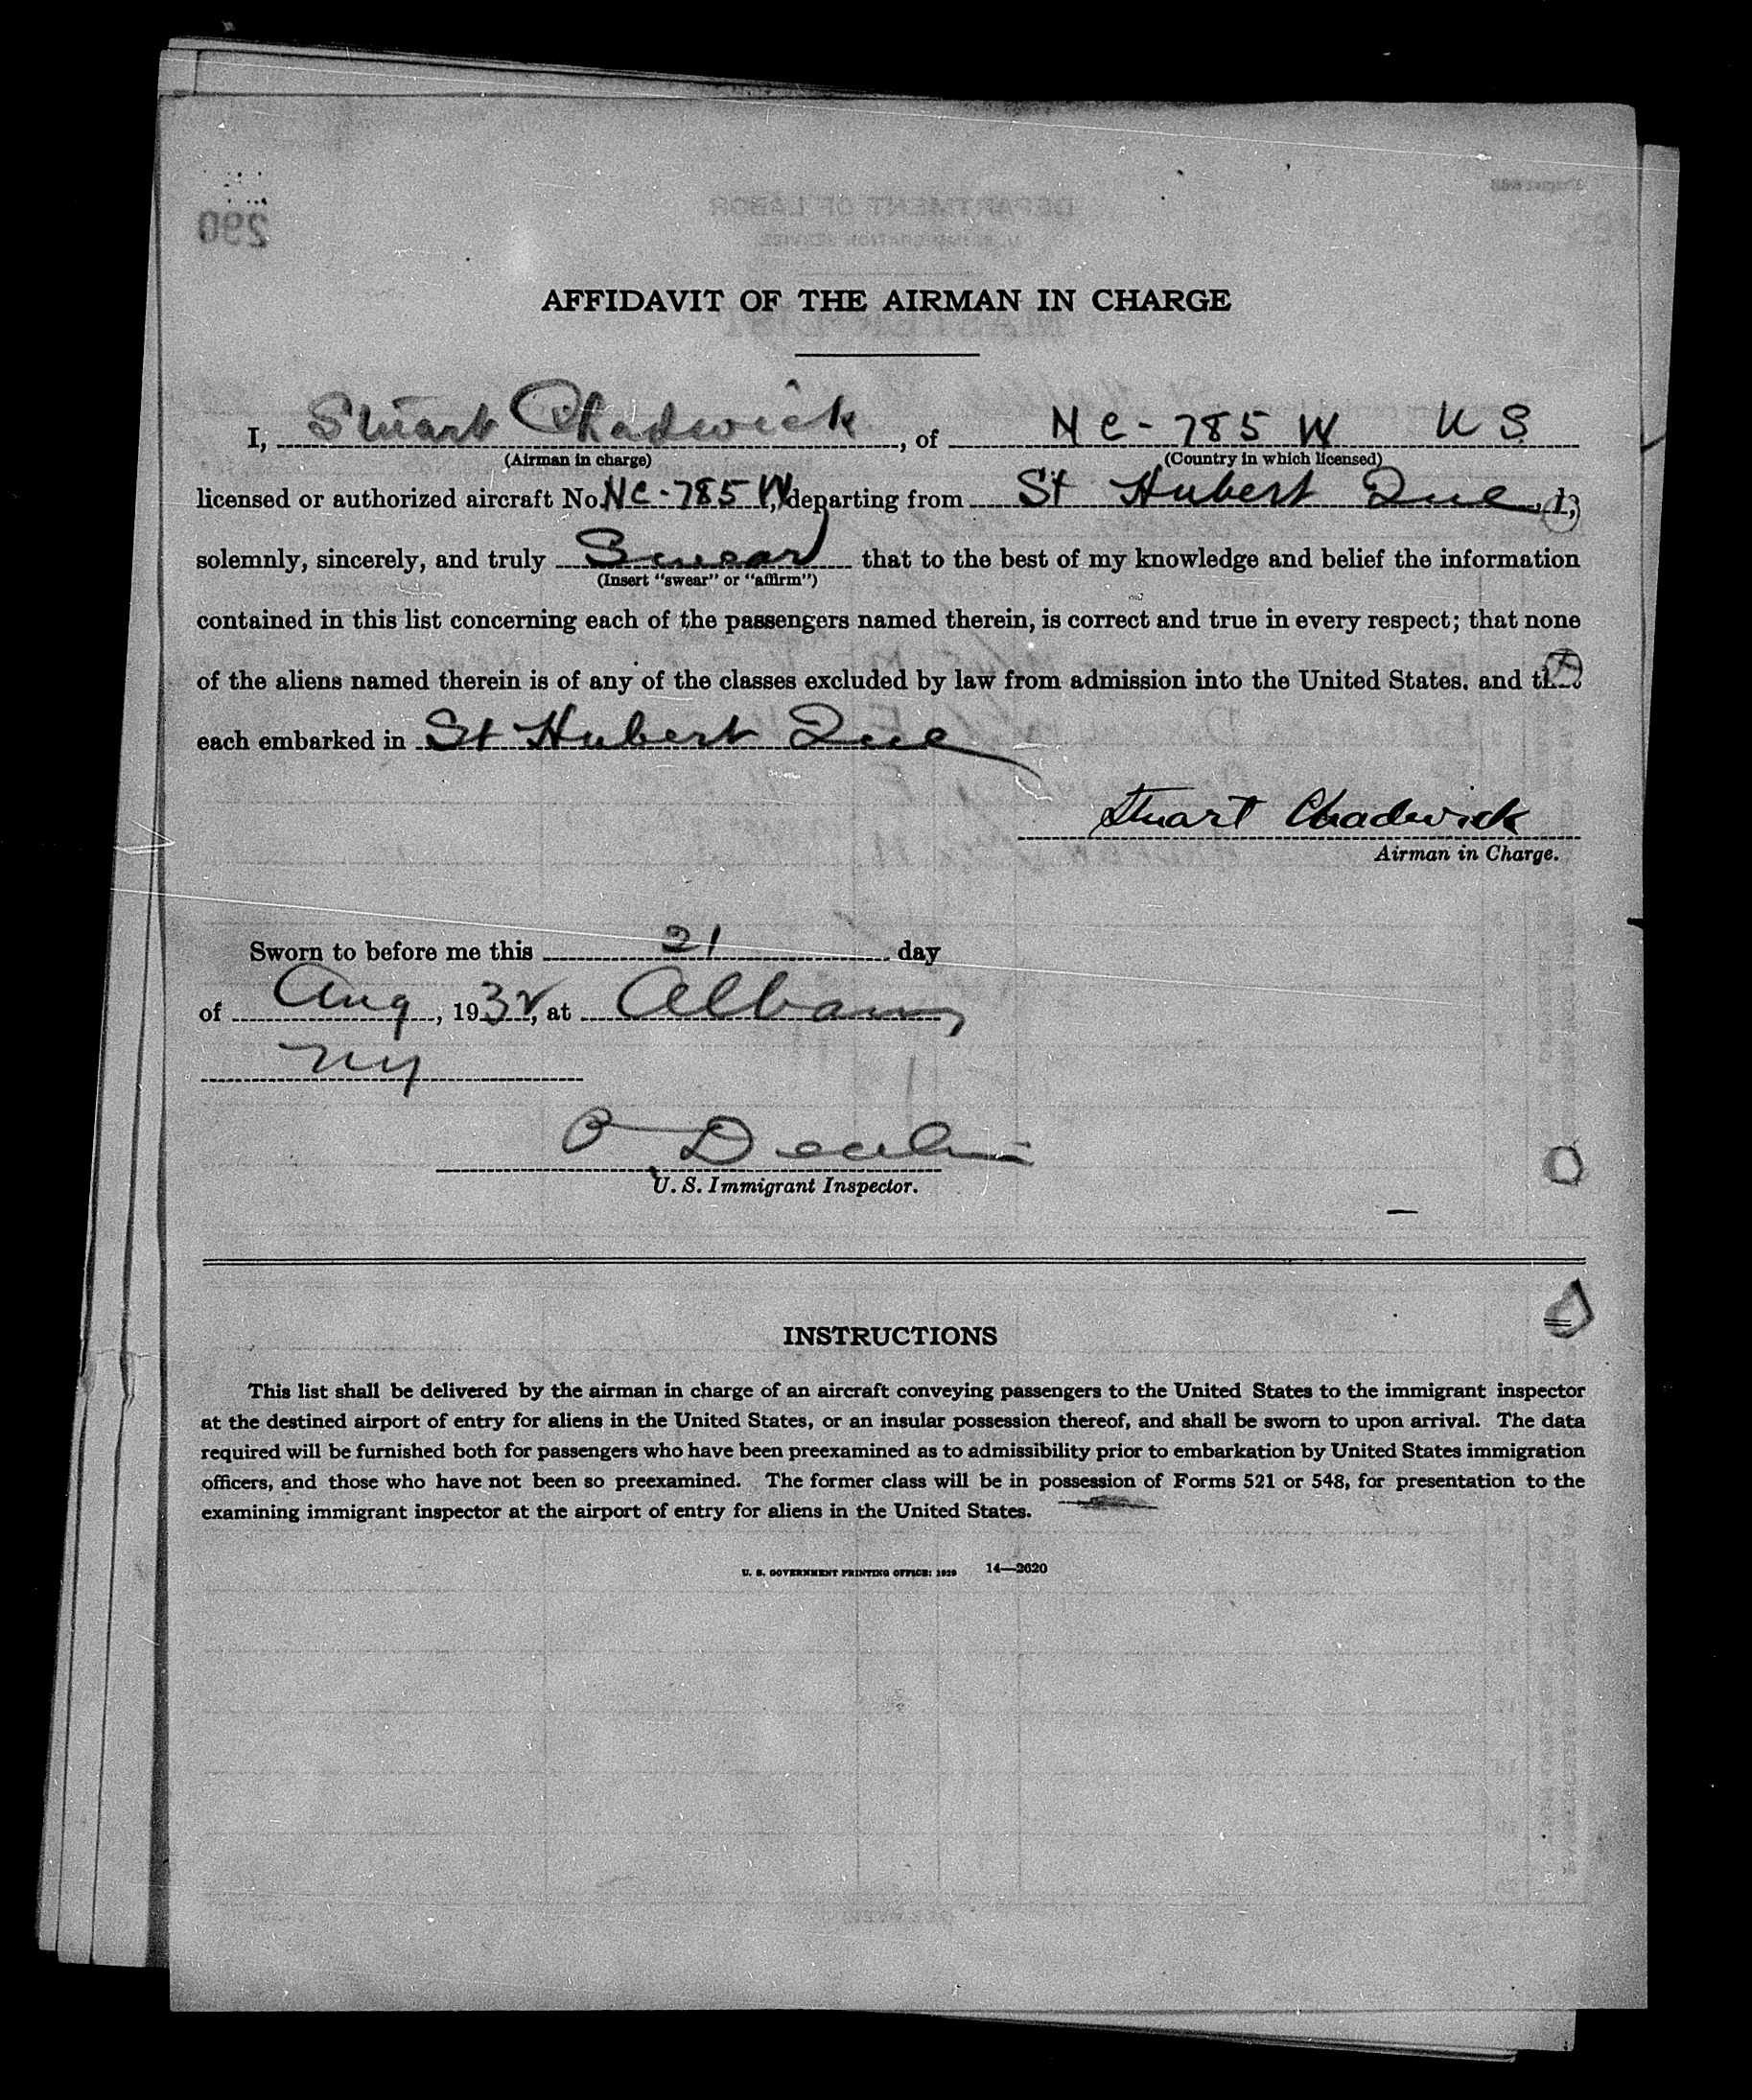 AFFIDAVIT OF THE AIRMAN IN CHARGE
I, Stuart Chadwick, of NC-785 W U S
(Airman in charge) (Country in which licensed)
licensed or authorized aircraft No. NC-785 W, departing from St Hubert Que, I,
solemnly, sincerely, and truly Swear that to the best of my knowledge and belief the information
(Insert "swear" or "affirm")
contained in this list concerning each of the passengers named therein, is correct and true in every respect; that none
of the aliens named therein is of any of the classes excluded by law from admission into the United States, and that
each embarked in St Hubert Que
Stuart Chadwick
Airman in Charge.
Sworn to before me this 21 day
of Aug, 1932, at Albany
NY
U. S. Immigrant Inspector.
INSTRUCTIONS
This list shall be delivered by the airman in charge of an aircraft conveying passengers to the United States to the immigrant inspector
at the destined airport of entry for aliens in the United States, or an insular possession thereof, and shall be sworn to upon arrival. The data
required will be furnished both for passengers who have been preexamined as to admissibility prior to embarkation by United States immigration
officers, and those who have not been so preexamined. The former class will be in possession of Forms 521 or 548, for presentation to the
examining immigrant inspector at the airport of entry for aliens in the United States.
U. S. GOVERNMENT PRINTING OFFICE: 1929 14—2620